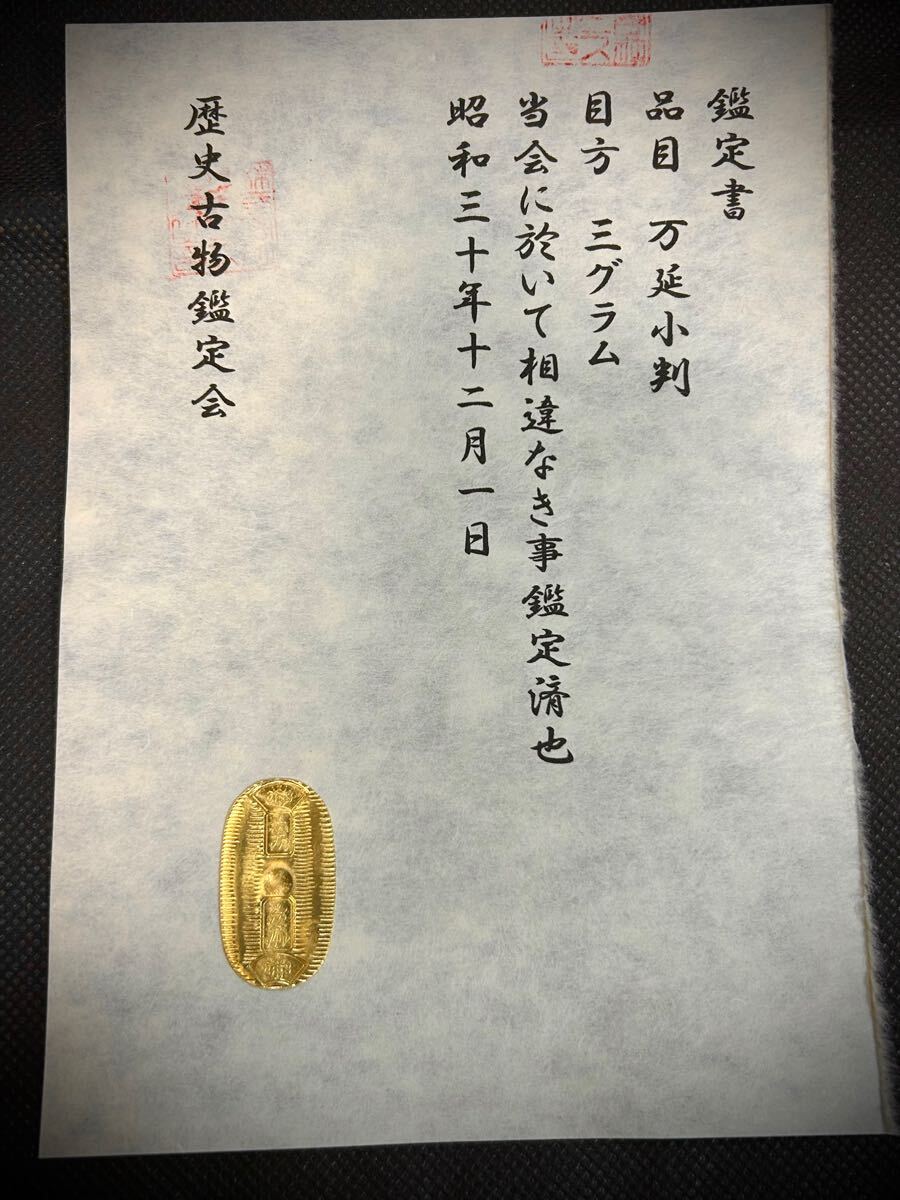 鑑定書
品目 万延小判
目方 三グラム
当会に於いて相違なき事鑑定済也
昭和三十年十二月一日
歴史古物鑑定会